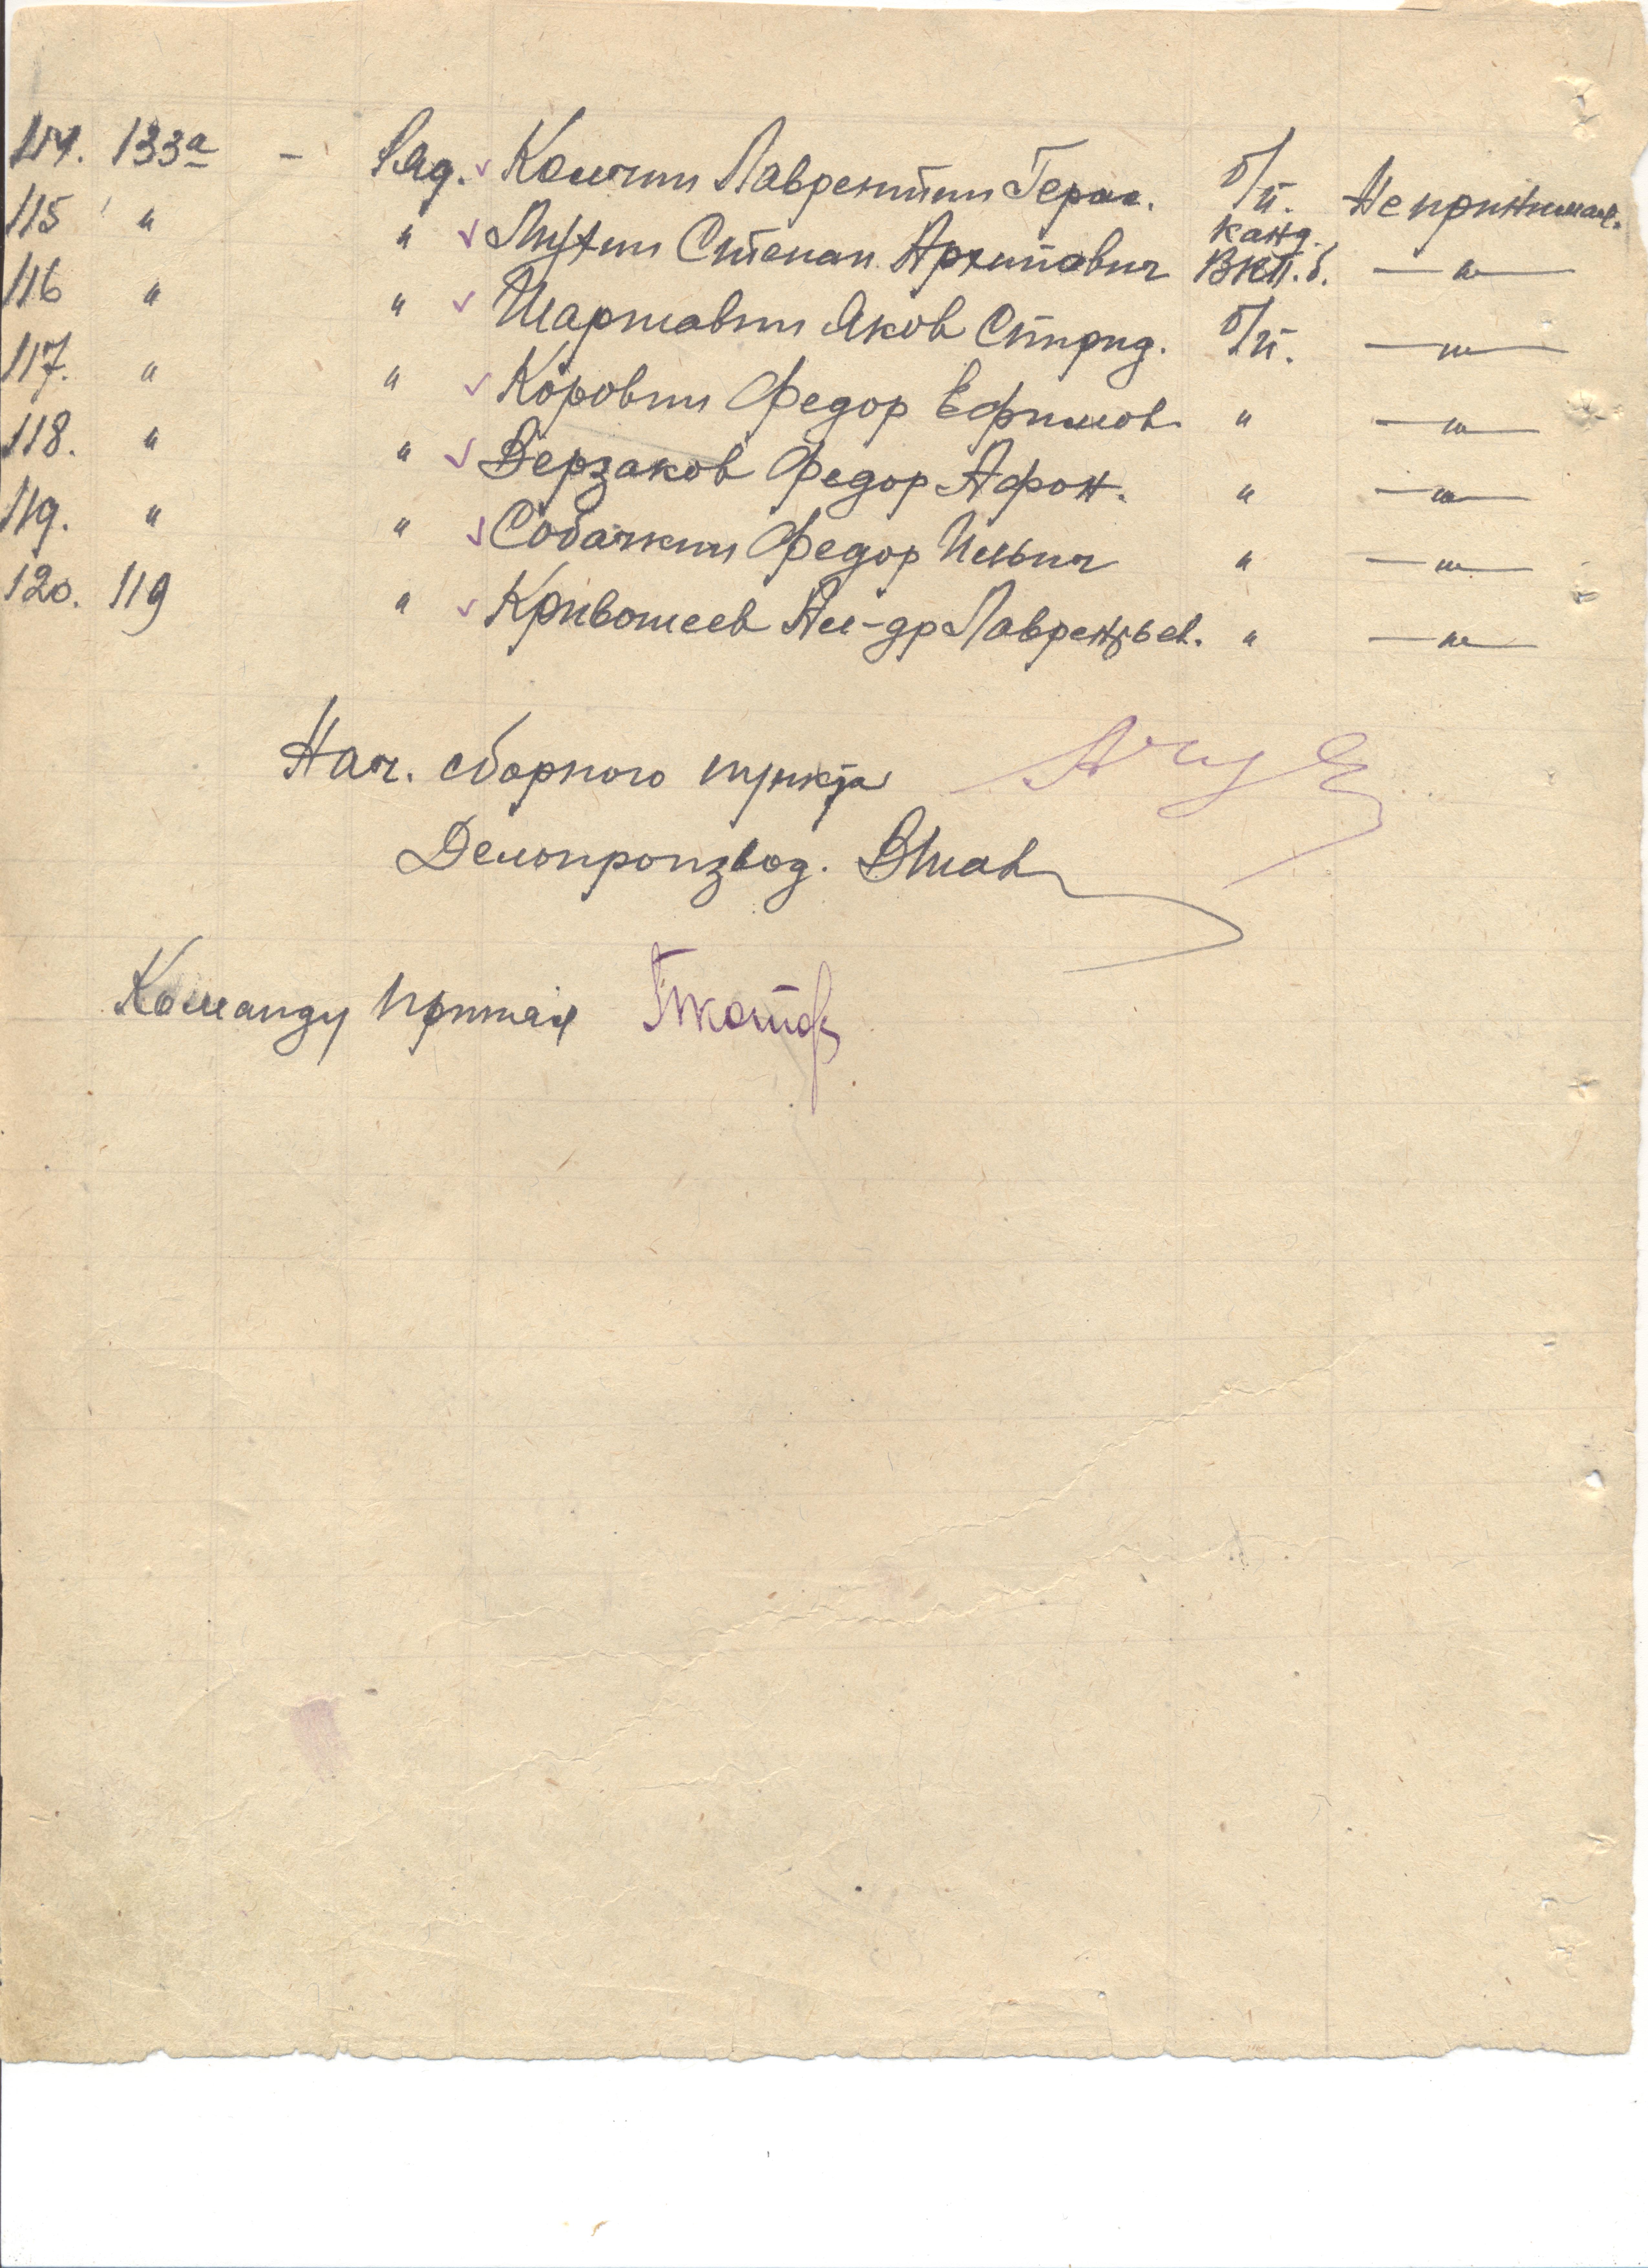 114. 133а - Ряд. Комчин Лаврентий Герас. б/п. Не принимал.
115 " " Степан Архипович канд. ВКП.б. —"—
116 " " Шаршавин Яков Спирид. б/п. —"—
117. " " Коровин Федор Ефимов. " —"—
118. " " Верзаков Федор Афон. " —"—
119. " " Собачкин Федор Ильич " —"—
120. 119 " Кривошеев Ал-др Лаврентьев. " —"—
Нач. сборного пункта
Делопроизвод.
Команду принял